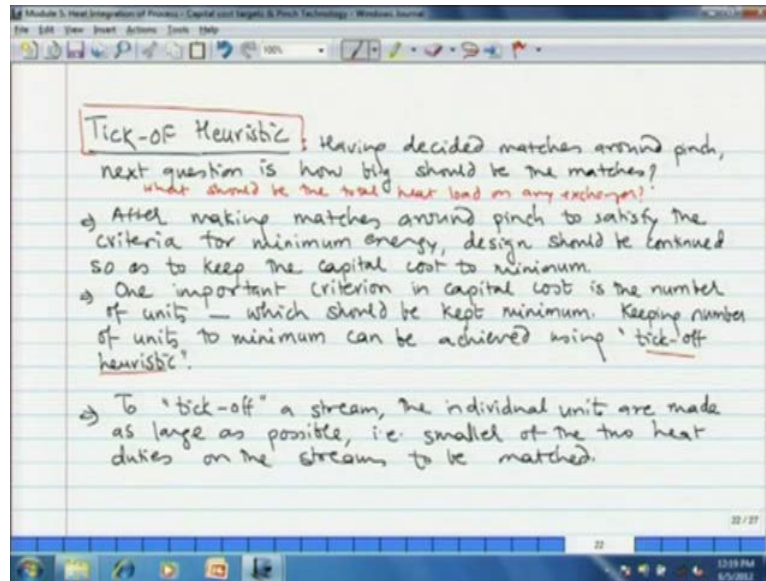 Module 5: Heat Integration of Process - Capital cost targets & Pinch Technology - Windows Journal
File Edit View Insert Actions Tools Help
100%
Tick-of Heuristic : Having decided matches around pinch,
next question is how big should be the matches?
What should be the total heat load on any exchanger?
⇒ After making matches around pinch to satisfy the
criteria for minimum energy, design should be continued
so as to keep the capital cost to minimum.
⇒ One important criterion in capital cost is the number
of units – which should be kept minimum. Keeping number
of units to minimum can be achieved using "tick-off
heuristic".
⇒ To "tick-off" a stream, the individual unit are made
as large as possible, i.e. smaller of the two heat
duties on the streams to be matched.
22 / 27
22
12:19 PM
6/5/2012